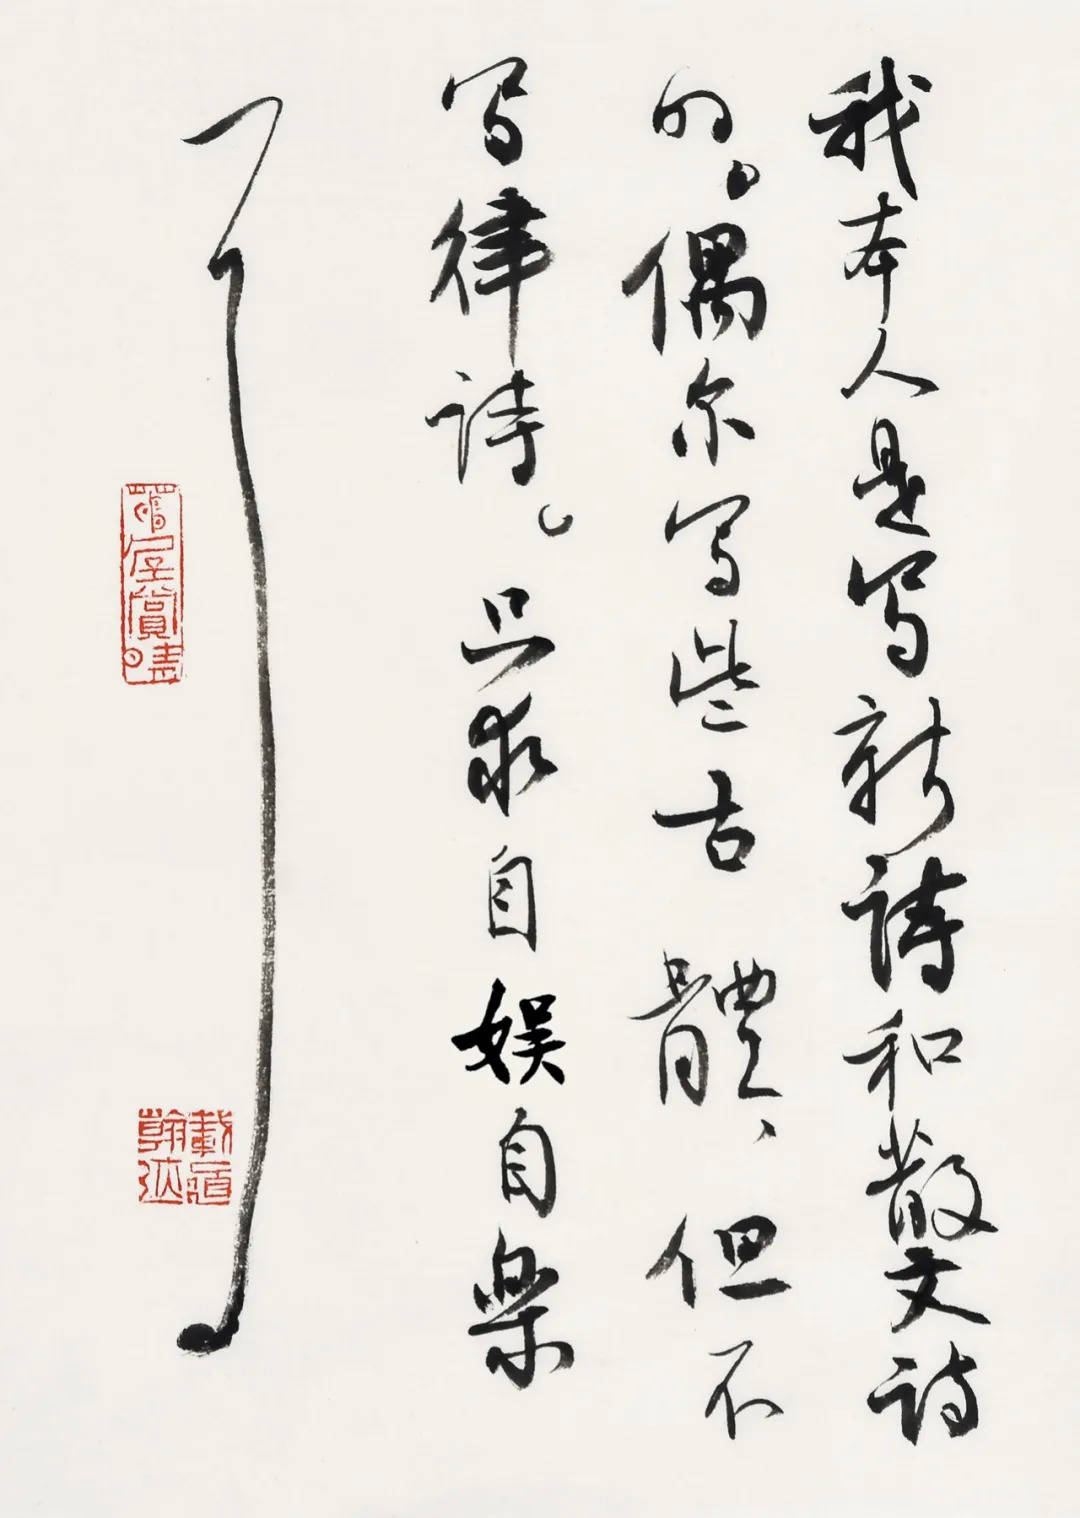 我本人是写新诗和散文诗
的。偶尔写些古體、但不
写律诗。只求自娱自樂
了